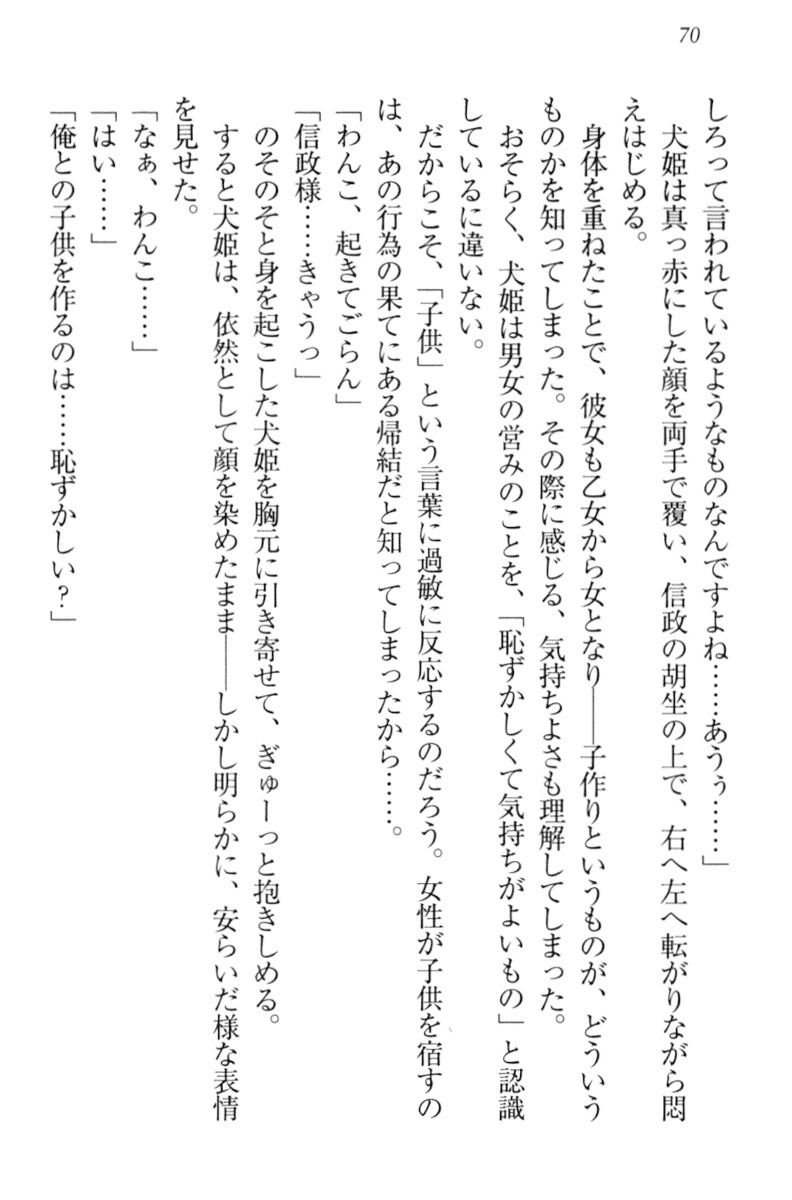 70
しろって言われているようなものなんですよね……あうぅ……」
　犬姫は真っ赤にした顔を両手で覆い、信政の胡坐の上で、右へ左へ転がりながら悶
えはじめる。
　身体を重ねたことで、彼女も乙女から女となり――子作りというものが、どういう
ものかを知ってしまった。その際に感じる、気持ちよさも理解してしまった。
　おそらく、犬姫は男女の営みのことを、「恥ずかしくて気持ちがよいもの」と認識
しているに違いない。
　だからこそ、「子供」という言葉に過敏に反応するのだろう。女性が子供を宿すの
は、あの行為の果てにある帰結だと知ってしまったから……。
「わんこ、起きてごらん」
「信政様……きゃうっ」
　のそのそと身を起こした犬姫を胸元に引き寄せて、ぎゅーっと抱きしめる。
　すると犬姫は、依然として顔を染めたまま――しかし明らかに、安らいだ様な表情
を見せた。
「なぁ、わんこ……」
「はい……」
「俺との子供を作るのは……恥ずかしい？」